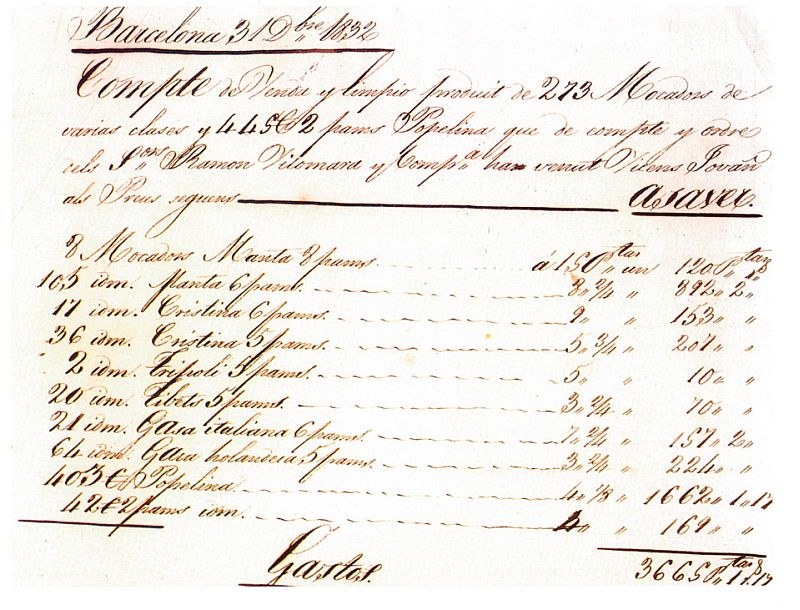 Barcelona 31 Dbre 1832
Compte de Venda y limpio produit de 273 Mocadors de
varias clases y 445 C 2 pams Popelina que de compte y ordre
dels Sors Ramon Vilomara y Compa han venut Vicens Jovañ
als Preus seguens Asaver.
8 Mocadors Manta 8 pams á 150 Ptas un 120 Ptas
105 idm. Manta 6 pams. 8 2/4 " 892 " 2 "
17 idm. Cristina 6 pams. 9 " " 153 " "
36 idm. Cristina 5 pams. 5 " 3/4 " 207 " "
2 idm. Tripoli 5 pams. 5 " " 10 " "
20 idm. Tibets 5 pams. 3 " 2/4 " 70 " "
21 idm. Gasa italiana 6 pams. 7 " 2/4 " 157 " 2 "
64 idm. Gasa holandesa 5 pams. 3 " 2/4 " 224 " "
403 C Popelina 4 " 1/8 " 1662 " 1 " 17
42 C 2 pams idm. 4 " " 169 " "
Gastos. 3665 Ptas 1 " 17